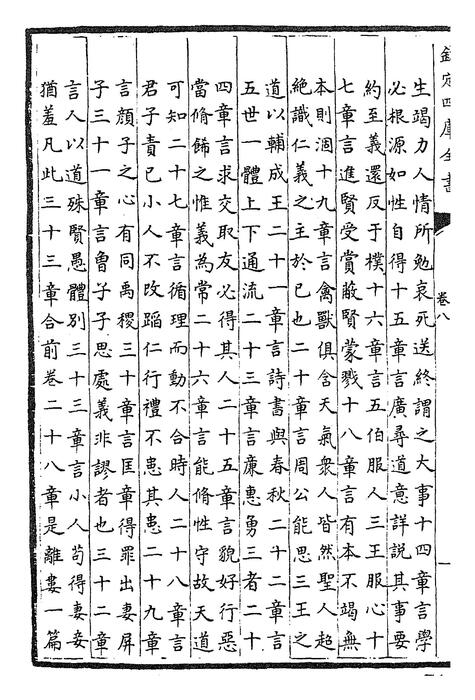 欽定四庫全書
卷八
生竭力人情所勉哀死送終謂之大事十四章言學
必根源如性自得十五章言廣尋道意詳說其事要
約至義還反于樸十六章言五伯服人三王服心十
七章言進賢受賞蔽賢蒙戮十八章言有本不竭無
本則涸十九章言禽獸俱含天氣衆人皆然聖人超
絶識仁義之主於己也二十章言周公能思三王之
道以輔成王二十一章言詩書與春秋二十二章言
五世一體上下通流二十三章言廉惠勇三者二十
四章言求交取友必得其人二十五章言貌好行惡
當脩飾之惟義為常二十六章言能脩性守故天道
可知二十七章言循理而動不合時人二十八章言
君子責已小人不改蹈仁行禮不患其患二十九章
言顔子之心有同禹稷三十章言匡章得罪出妻屏
子三十一章言曽子子思處義非謬者也三十二章
言人以道殊賢愚體别三十三章言小人苟得妻妾
猶羞凡此三十三章合前卷二十八章是離婁一篇